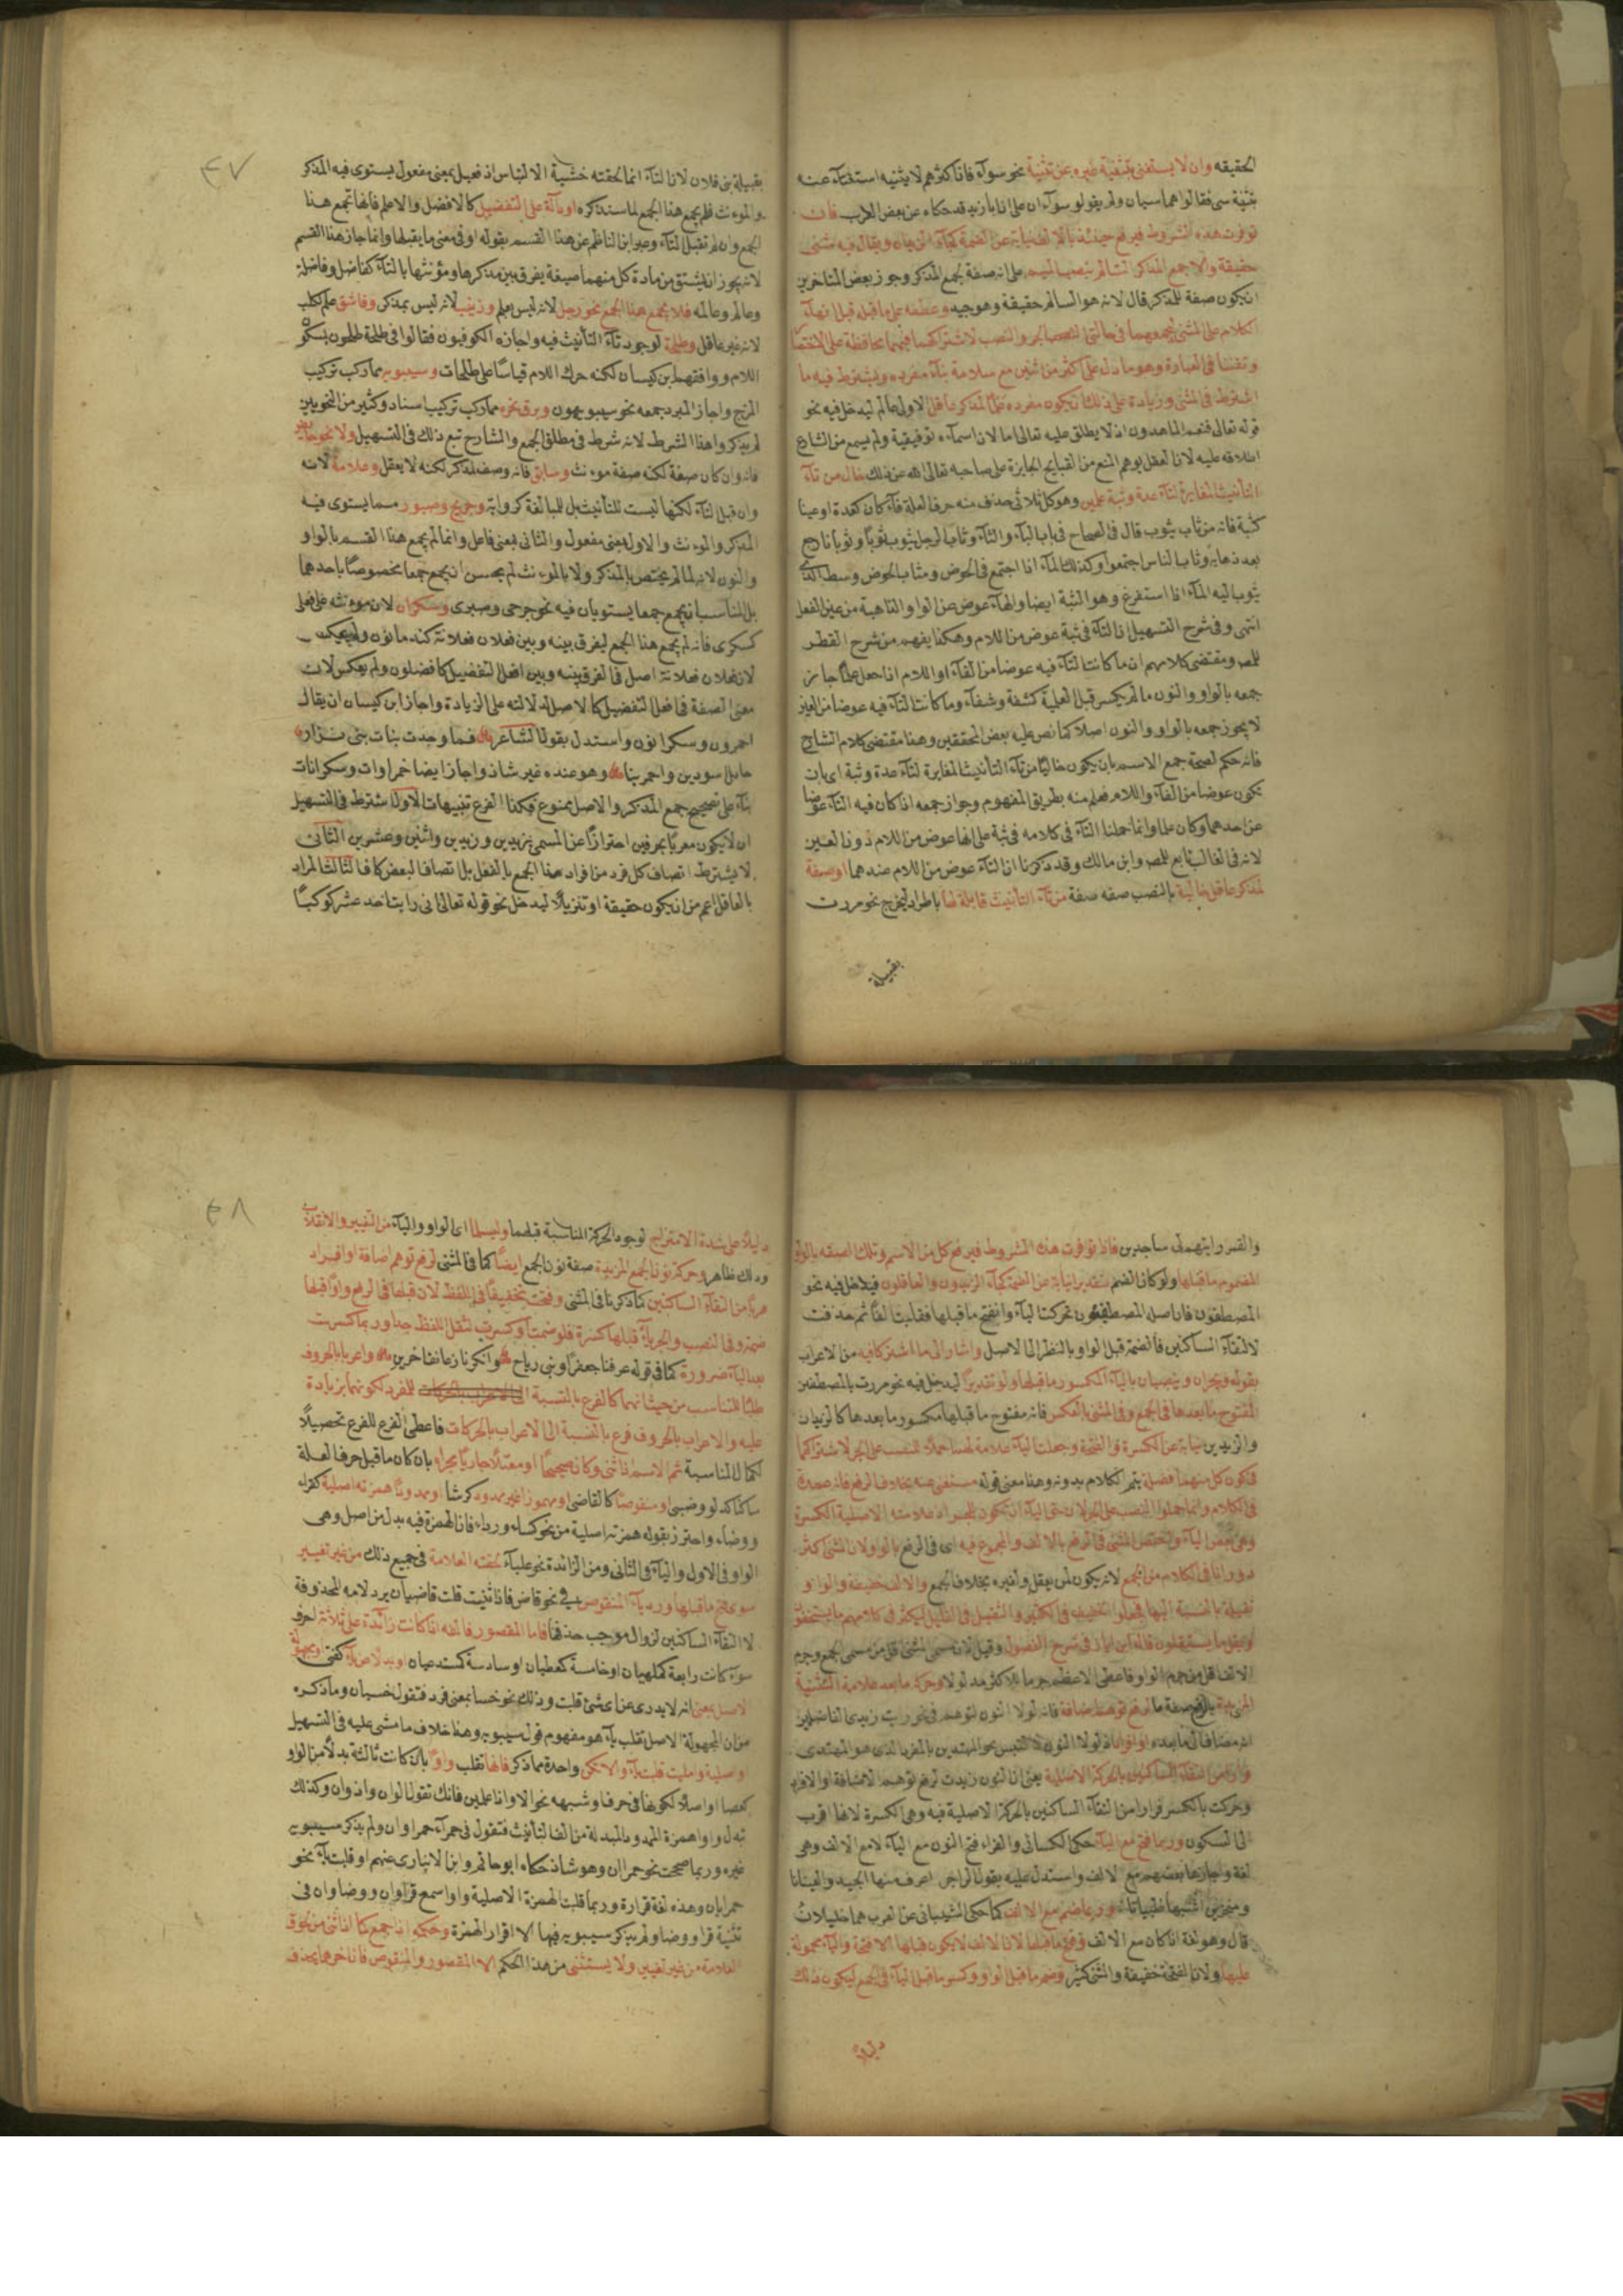 الحقيقه وان لا يستغنى بتثنية غيره عن تثنية نحو سوآء فان اكثرهم لا يثنيه استغناء عنه
بتثنية سى فقالوا هما سيان ولم يقولو سوآان على ان ابا زيد قد حكاه عن بعض العرب فان
توفرت هذه الشروط فيرفع حينئذ بالالف نيابة عن الضمة
حقيقة والاجمع المذكر السالم بنصب الميم على انه صفة لجمع المذكر وجوز بعض المتاخرين
ان يكون صفة للمذكر قال لانه هو السالم حقيقة وهو جيد وعطفه على ما قبله قبل انهاء
الكلام على المثنى ليجمعهما فى حالتى النصب والجر لاشتراكهما فيهما محافظة على الاختصار
وتفننا فى العبارة وهو ما دل على اكثر من اثنين مع سلامة بنآء مفرده ويشترط فيه ما
اشترط فى المثنى وزيادة على ذلك ان يكون مفرده علما لمذكر عاقل الاولى عالم ليدخل فيه نحو
قوله تعالى فنعم الماهدون اذ لا يطلق عليه تعالى اما لان اسمآءه توقيفية ولم يسمع من الشارع
اطلاقه عليه لان العقل يوهم المنع من القبايح الجايزة على صاحبه تعالى الله عن ذلك خال من تآء
التأنيث المغايرة لتآء عدة وثبة علمين وهو كل ثلاثى حذف منه حرف العلة فآء كان كعدة او عينا
كثبة فانه من ثاب يثوب قال فى الصحاح فى باب البآء والثآء وثاب الرجل يثوب ثوبا وثوبانا رجع
بعد ذهابه وثاب الناس اجتمعوا وكذلك المآء اذا اجتمع فى الحوض ومثاب الحوض وسطه الذى
يثوب اليه المآء اذا استفرغ وهو الثبة ايضا والهآء عوض عن الواو الذاهبة من عين الفعل
انتهى وفى شرح التسهيل ان التآء فى ثبة عوض من اللام وهكذا يفهم من شرح القطر
للمصـ ومقتضى كلامهم ان ما كانت التآء فيه عوضا من الفآء او اللام اذا جعل علما جاز
جمعه بالواو والنون ما لم يكسر قبل العلمية كشفة وشفآء وما كانت التآء فيه عوضا من العين
لا يجوز جمعه بالواو والنون اصلا كما نص عليه بعض المحققين وهنا مقتضى كلام الشارح
فانه حكم لصحة جمع الاسم بان يكون خاليا من تآء التأنيث المغايرة لتآء عدة وثبة اى بان
تكون عوضا من الفآء واللام فعلم منه بطريق المفهوم وجواز جمعه اذا كان فيه التآء عوضا
عن احدهما وكان علما وانما حملنا التآء فى كلامه فى ثبة على انها عوض من اللام دون العين
لانه فى الغالب تابع للمصـ وابن مالك وقد ذكرنا ان التآء عوض من اللام عندهما او صفة
لمذكر عاقل خالية بالنصب صفه صفة من تآء التأنيث قابلة لها باطراد ليخرج نحو مررت
بقبيلة
٤٧
بقبيلة بنى فلان لان التآء انما لحقته خشية الالتباس اذ فعيل بمعنى مفعول يستوى فيه المذكر
والمونث فلم يجمع هذا الجمع لما سنذكره او دآلة على التفضيل كالافضل والاعلم فانها تجمع هذا
الجمع وان لم تقبل التآء وعبر ابن الناظم عن هذا القسم بقوله او فى معنى ما يقبلها وانما جاز هذا القسم
لانه يجوز ان يشتق من مادة كل منهما صيغة يفرق بين مذكرها ومؤنثها بالتآء كفاضل وفاضلة
وعالم وعالمه فلا يجمع هذا الجمع نحو رجل لانه ليس بعلم وزينب لانه ليس بمذكر وفاشق علم لكلب
لانه غير عاقل وطلحة لوجود تآء التأنيث فيه واجازه الكوفيون فقالوا فى طلحة طلحون بسكون
اللام ووافقهم ابن كيسان لكنه حرك اللام قياسا على طلحات وسيبويه مما ركب تركيب
المزج واجاز المبرد جمعه نحو سيبويهون وبرق نحره مما ركب تركيب اسناد وكثير من النحويين
لم يذكروا هذا الشرط لانه شرط فى مطلق الجمع والشارح تبع ذلك فى التسهيل ولا نحو حايض
فانه وان كان صفة لكنه صفة مونث وسابق فانه وصف لمذكر لكنه لا يعقل وعلامة لانه
وان قبل التآء لكنها ليست للتأنيث بل للمبالغة كرواية وجريح وصبور مما يستوى فيه
المذكر والمونث والاول بمعنى مفعول والثانى بمعنى فاعل وانما لم يجمع هذا القسم بالواو
والنون لانه لما لم يختص بالمذكر ولا بالمونث لم يحسن ان يجمع جمعا مخصوصا باحدهما
بل المناسب ان يجمع جمعا يستويان فيه نحو جرحى وصبرى وسكران لان مونثه على فعلى
كسكرى فانه لم يجمع هذا الجمع ليفرق بينه وبين فعلان فعلانة كندمانون ولم يعكس
لان فعلان فعلانة اصل فالفرق بينه وبين افعل التفضيل كافضلون ولم يعكس لان
معنى الصفة فى افعل التفضيل كالاصل لدلالته على الزيادة واجاز ابن كيسان ان يقال
احمرون وسكرانون واستدل بقول الشاعر فما وجدت بنات بنى نزار
حلائل سودين واحمرينا وهو عنده غير شاذ واجاز ايضا حمراوات وسكرانات
بنآء على تصحيح جمع المذكر والاصل ممنوع فكذا الفرع تنبيهات الاول اشترط فى التسهيل
ان لا يكون معربا بحرفين احترازا عن المسمى بزيدين وزيدين واثنين وعشرين الثانى
لا يشترط اتصاف كل فرد من افراد هذا الجمع بالفعل بل اتصاف البعض كاف الثالث المراد
بالعاقل اعم من ان يكون حقيقة او تنزيلا ليدخل نحو قوله تعالى انى رايت احد عشر كوكبا
والقمر رايتهم لى ساجدين فاذا توفرت هذه الشروط فيرفع كل من الاسم وتلك الصفه بالواو
المضموم ما قبلها ولو كان الضم مقدرا نيابة عن الضمة كجآء الزيدون والعاقلون فيدخل فيه نحو
المصطفون فان اصله المصطفيون تحركت اليآء وانفتح ما قبلها فقلبت الفا ثم حذفت
لالتقآء الساكنين فالضمة قبل الواو بالنظر الى الاصل واشار الى ما اشتركا فيه من الاعراب
بقوله ويجران وينصبان باليآء المكسور ما قبلها ولو تقديرا ليدخل فيه نحو مررت بالمصطفين
المفتوح ما بعدها فى الجمع وفى المثنى بالعكس فانه مفتوح ما قبلها مكسور ما بعدها كالزيدين
والزيدين نيابة عن الكسرة والفتحة وجعلت اليآء علامة لهما حملا للنصب على الجر لاشتراكهما
فى كون كل منهما فضلة يتم الكلام بدونه وهنا معنى قوله مستغنى عنه بخلاف الرفع فانه عمدة
فى الكلام وانما حملوا النصب على الجر لان حق اليآء ان تكون للجر اذ علامته الاصلية الكسرة
وهى بعض اليآء واختص المثنى فى الرفع بالالف والمجموع فيه اى فى الرفع بالواو لان المثنى اكثر
دورانا فى الكلام من الجمع لانه يكون لمن يعقل ولغيره بخلاف الجمع والالف خفيفة والواو
ثقيلة بالنسبة اليها فجعلوا الخفيف فى الكثير والثقيل فى القليل ليكثر فى كلامهم ما يستخفون
ويقل ما يستثقلون قاله ابن اياز فى شرح الفصول وقيل لان مسمى المثنى اقل من مسمى الجمع وجرم
الالف اقل من جرم الواو فاعطى الاعظم جرما للاكثر مدلولا وحركة ما بعد علامة التثنية
المزيدة بالرفع صفة ما لرفع توهم اضافة فانه لولا النون لتوهم فى نحو رايت زيدى الفاضلين
انه مضاف الى ما بعده او افراد اذ لولا النون لالتبس نحو المهتدين بالمفرد الذى هو المهتدى
فرارا من التقآء الساكنين بالحركة الاصلية يعنى ان النون زيدت لرفع توهم الاضافة او الافراد
وحركت بالكسر فرارا من التقآء الساكنين بالحركة الاصلية فيه وهى الكسرة لانها اقرب
الى السكون وربما فتح مع اليآء حكى الكسائى والفراء فتح النون مع اليآء لا مع الالف وهى
لغة واجازها بعضهم مع الالف واستدل عليه بقول الراجز اعرف منها الجيد والعينانا
ومنخرين اشبها ظبيانا وربما ضم مع الالف كما حكى الشيبانى عن العرب هما خليلان
قال وهو لغة اذا كان مع الالف وفتح ما قبلها لان الالف لا يكون قبلها الا فتحة واليآء محمولة
عليها ولان الفتحة خفيفة والمثنى كثير وضم ما قبل الواو وكسر ما قبل اليآء فى الجمع ليكون ذلك
دليلا
٤٨
دليلا على شدة الامتزاج لوجود الحركة المناسبة قبلهما وليسلما اى الواو واليآء من التغيير والانقلاب
وذلك ظاهر وحركة نون الجمع المزيدة صفة نون الجمع ايضا كما فى المثنى لرفع توهم اضافة او افراد
هربا من التقآء الساكنين كما ذكرنا فى المثنى وفتحت تخفيفا فى اللفظ لان قبلها فى الرفع واوا قبلها
ضمة وفى النصب والجر يآء قبلها كسرة فلو ضمت او كسرت لثقل اللفظ جدا وربما كسرت
بعد اليآء ضرورة كما فى قوله عرفنا جعفرا وبنى رياح وانكرنا زعانف اخرين واعربا بالحروف
طلبا للتناسب من حيث انهما كالفرع بالنسبة للمفرد لكونهما بزيادة
عليه والاعراب بالحروف فرع بالنسبة الى الاعراب بالحركات فاعطى الفرع للفرع تحصيلا
لكمال المناسبة ثم الاسم اذا ثنى وكان صحيحا او معتلا جاريا مجراه بان كان ما قبل حرف العلة
ساكنا كدلو وظبى او منقوصا كالقاضى او مهموزا غير ممدود كرشا او ممدودا همزته اصلية كقرآء
ووضآء واحترز بقوله همزته اصلية من نحو كسآء وردآء فان الهمزة فيه بدل من اصل وهى
الواو فى الاول واليآء فى الثانى ومن الزائدة نحو علبآء لحقته العلامة فى جميع ذلك من غير تغيير
سوى فتح ما قبلها ورد يآء المنقوص فى نحو قاض فاذا ثنيت قلت قاضيان برد لامه المحذوفة
لالتقآء الساكنين لزوال موجب حذفها فاما المقصور فالفه اذا كانت زآئدة على ثلاثة احرف
سوآء كانت رابعة كملهيان او خامسة كمعطيان او سادسة كمستدعيان او بدلا من يآء كفتى او مجهولة
الاصل بمعنى انه لا يدرى عن اى شئ قلبت وذلك نحو خسا بمعنى فرد فتقول خسيان وما ذكره
من ان المجهولة الاصل تقلب يآء هو مفهوم قول سيبويه وهنا خلاف ما مشى عليه فى التسهيل
او اصلية واميلت قلبت يآء والا تكن واحدة مما ذكر فانها تقلب واوا بان كانت ثالثة بدلا من الواو
كعصا او اصلا لكونها فى حرف او شبهه نحو الا واذا علمين فانك تقول الوان واذوان وكذلك
تبدل واوا همزة الممدود المبدلة من الف التأنيث فتقول فى حمرآء حمراوان ولم يذكر سيبويه
غيره وربما صححت نحو حمراان وهو شاذ حكاه ابو حاتم وابن الانبارى عنهم او قلبت يآء نحو
حمرايان وهذه لغة فزارة وربما قلبت الهمزة الاصلية واوا سمع قراوان ووضاوان فى
تثنية قرا ووضا ولم يذكر سيبويه فيها الا اقرار الهمزة وحكمه اذا جمع كما اذا ثنى من لحوق
العلامة من غير تغيير ولا يستثنى من هذا الحكم الا المقصور والمنقوص فان اخرهما يحذف